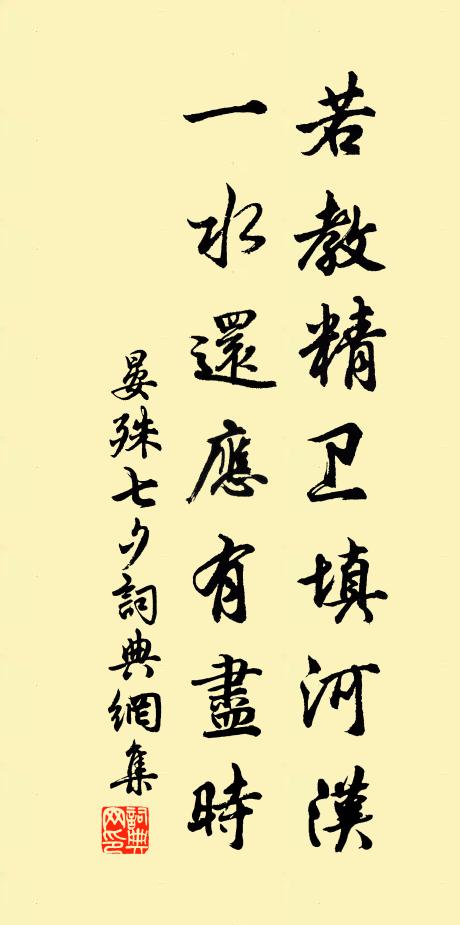 若教精卫填河漢
一水還應有盡時
晏殊七夕詞典網集
詞典网印